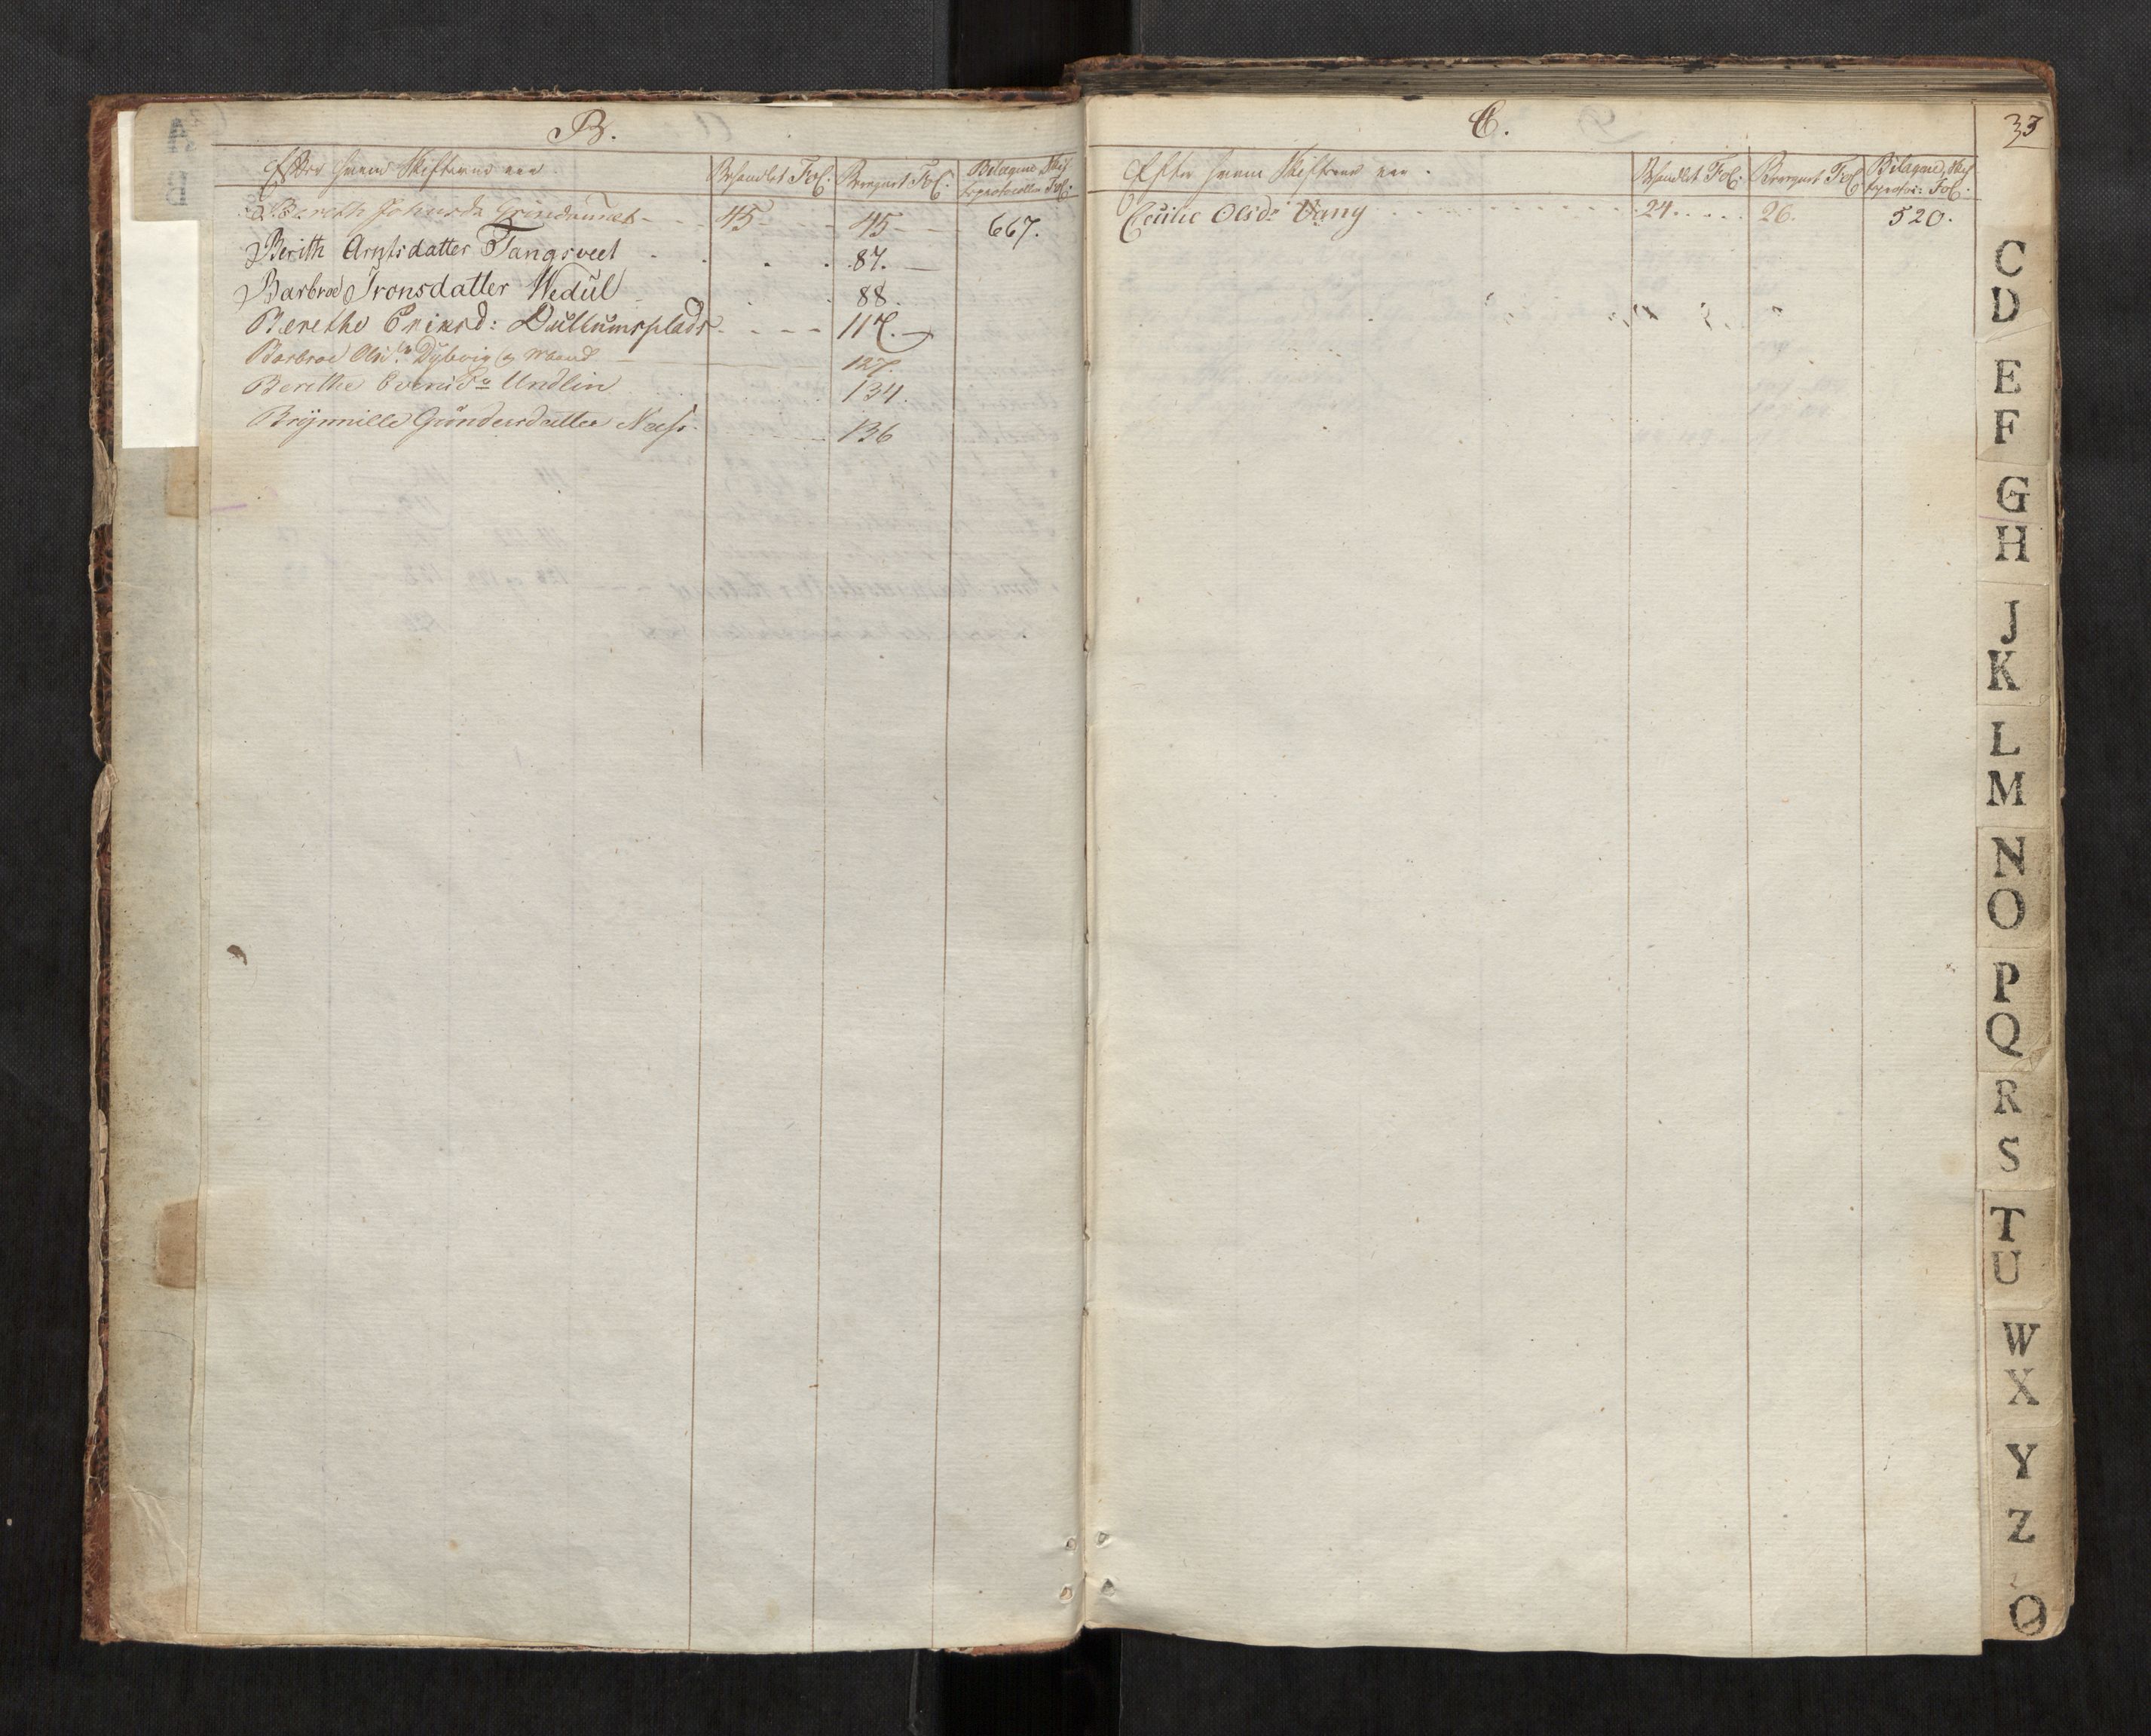 B.
Efter hvem Skifterne ere. Behandlet Fol: Beroquet Fol: Bilagene, Skifteprotocollen Fol:
Bereth Johnsdr Grindaunet 45 45 667.
Berith Arntsdatter Tangsveet 87.
Barbroe Tronsdatter Wedul 88.
Berethe Eriksd: Duklumsplads 117.
Barbroe Olsdr Dybvig 127.
Berethe Evensdr Undlin 134.
Brynnille Gundersdatter Næss. 136
C. 33
Efter hvem Skifterne ere. Behandlet Fol: Fol: Bilagene, Skifteprotoc: Fol:
Cecilie Olsdr Vang 24. 26. 520.
C
D
E
F
G
H
J
K
L
M
N
O
P
Q
R
S
T
U
W
X
Y
Z
Ø